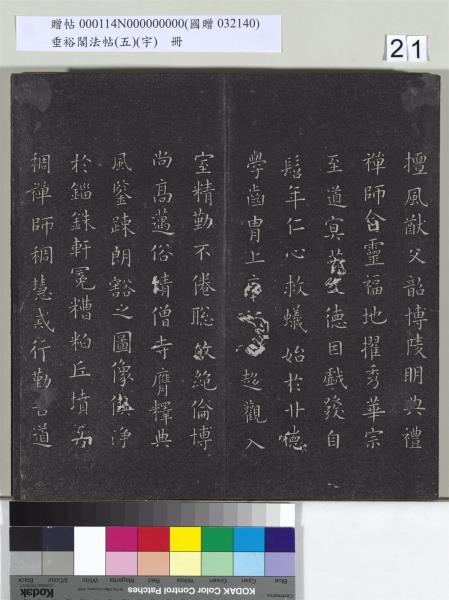 贈帖 000114N000000000(國贈 032140)
垂裕閣法帖(五)(宇) 冊
21
擅風猷父韶博陵明典禮
禪師含靈福地擢秀華宗
至道冥德因戲發自
髫年仁心救蟻始於廿
學齒胄上庠趍觀入
室精勤不倦聡敏絕倫博
尚高邁俗情僧寺膺釋典
風鑒疎朗豁之圖像儼淨
於錙銖軒冕糟粕丘墳
稠禪師稠慧式行勤苦道
Blue Cyan Green Yellow Red Magenta White 3/Color Black
Kodak KODAK Color Control Patches Kodak